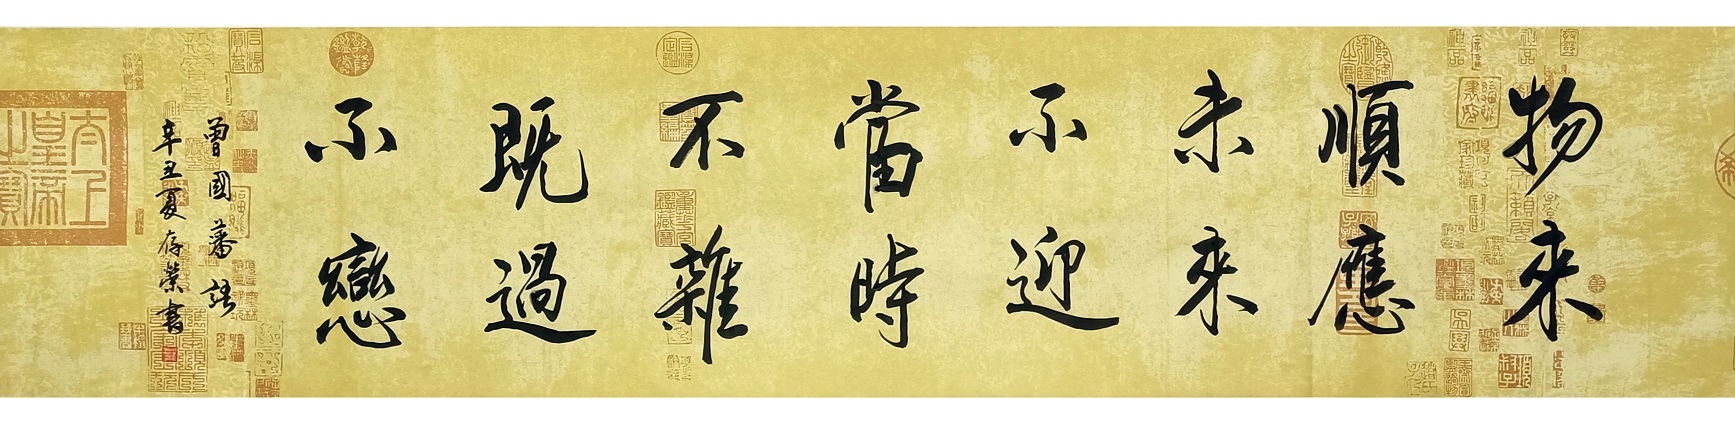 物來
順應
未來
不迎
當時
不雜
既過
不戀
曾國藩語
辛丑夏存榮書